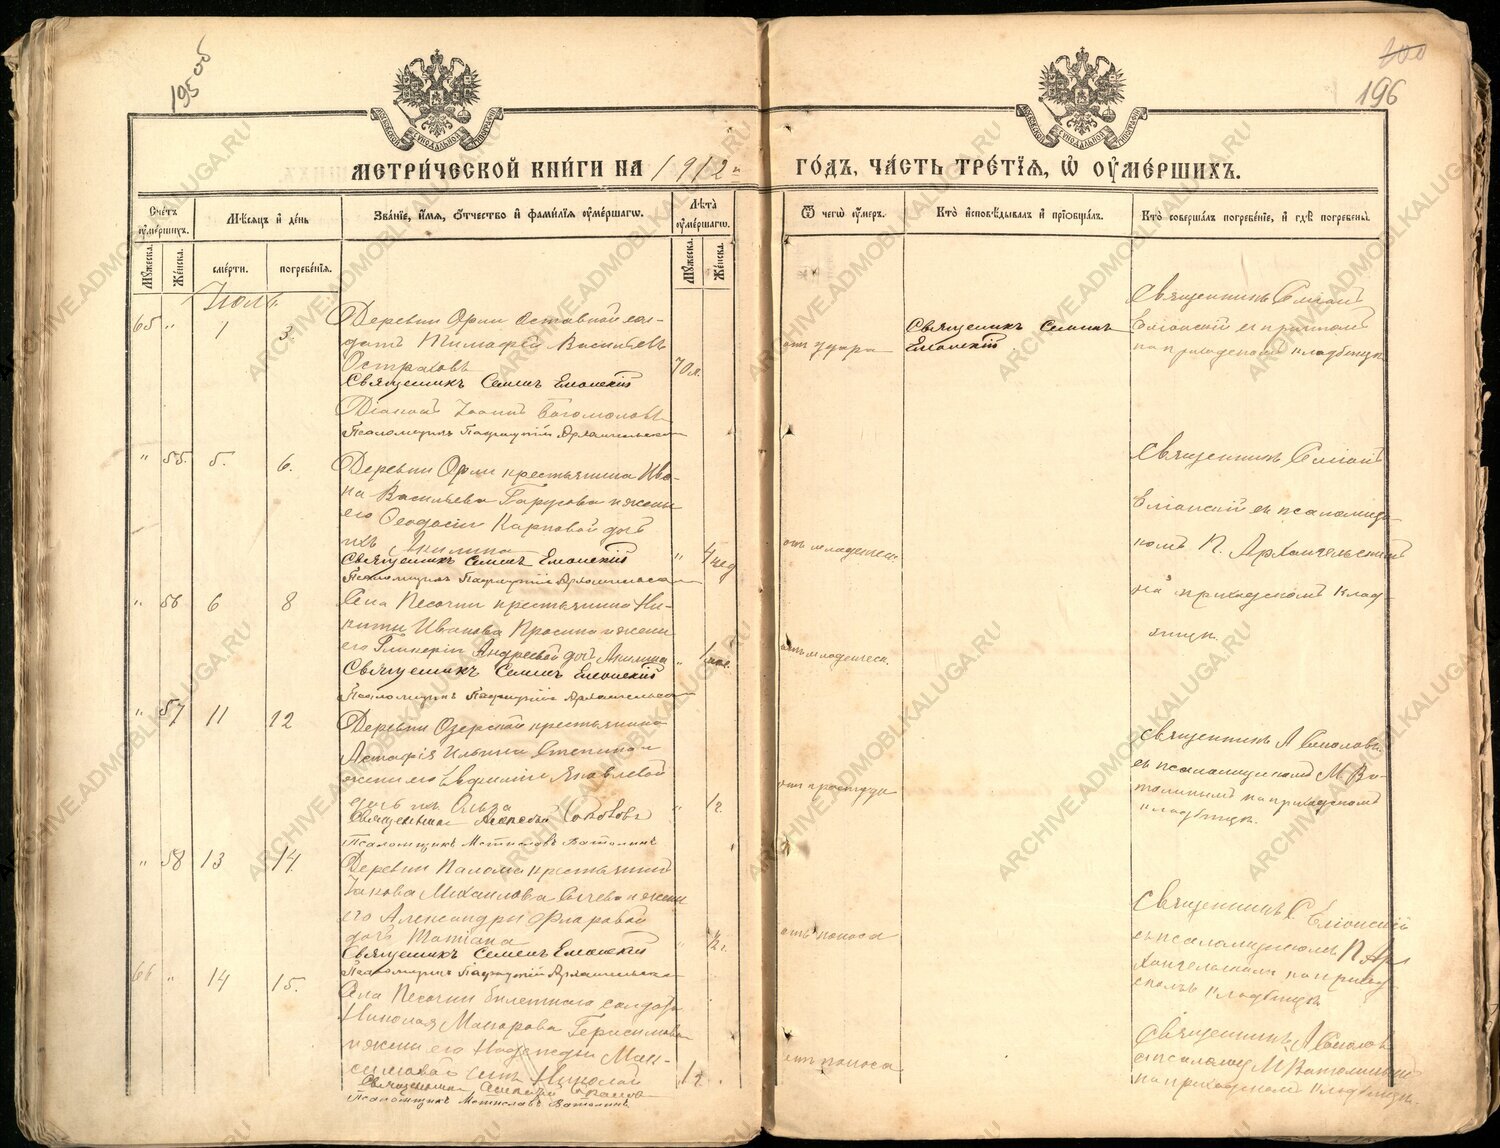 195 об
196
МЕТРИ́ЧЕСКОЙ КНИ́ГИ НА 1912 й
ГО́ДЪ, ЧА́СТЬ ТРЕ́ТІѦ, Ѡ ОУМЕ́РШИХЪ.
Сче́тъ оуме́ршихъ.
Мѣ́сяцъ и́ де́нь
Зва́ніе, и́мя, о́тчество и́ фами́лія оуме́ршагѡ.
Лѣ́та оуме́ршагѡ.
Ѿ чегѡ̀ оу́меръ.
Кто̀ и҆сповѣ́дывалъ и҆ пріѡбща́лъ.
Кто̀ соверша́лъ погребе́ніе, и҆ гдѣ̀ погребены̀.
Мꙋ́жеска.
Же́нска.
сме́рти.
погребе́нія.
Мꙋ́жеска.
Же́нска.
Июль
65 " 1 3.
Деревни Орли отставной сол-
датъ Тимофей Васильевъ
Остраховъ
70 л.
Священникъ Семенъ Елонскій
Діаконъ Іоаннъ Богомоловъ
Псаломщикъ Пафнутій Архангельскій
отъ удара
Священникъ Семенъ
Елонскій
Священникъ Симеонъ
Елонскій съ причтомъ
на приходскомъ кладбищѣ
" 55. 5. 6.
Деревни Орли крестьянина Ива-
на Васильева Гарусова и жены
его Ѳеодосіи Карповой дочь
ихъ Акилина
" 4 нед
Священникъ Семенъ Елонскій
Псаломщикъ Пафнутій Архангельскій
отъ младенч.
Священникъ Симеонъ
Елонскій съ псаломщи-
комъ П. Архангельскимъ
на приходскомъ клад-
бищѣ.
" 56 6 8
Села Песочни крестьянина Ни-
киты Иванова Просина и жены
его Гликеріи Андреевой дочь Акилина
" 1 мес.
Священникъ Семенъ Елонскій
Псаломщикъ Пафнутій Архангельскій
отъ младенческ.
" 57 11 12
Деревни Озерской крестьянина
Астафія Ильина Степина и
жены его Евфиміи Яковлевой
дочь ихъ Ольга
" 1 г.
Священникъ Алексѣй
Псаломщикъ Мстиславъ Ватолинъ
отъ простуды
Священникъ А
съ псаломщикомъ М Ва-
толинымъ на приходскомъ
кладбищѣ.
" 58 13 14.
Деревни Палома крестьянина
Іакова Михаилова Сычева и жены
его Александры Фларовой
дочь Татіана
" ½ г.
Священникъ Семенъ Елонскій
Псаломщикъ Пафнутій Архангельскій
отъ поноса
Священникъ С Елонскій
съ псаломщикомъ П Ар-
хангельскимъ на приход-
скомъ кладбищѣ
66 " 14 15.
Села Песочни билетнаго солдата
Николая Макарова Герасимова
и жены его Надежды Мак-
симовой сынъ Николай
1 г.
Священникъ Алексѣй
Псаломщикъ Мстиславъ Ватолинъ.
отъ поноса
Священникъ А
съ псаломщ М Ватолинымъ
на приходскомъ кладбищѣ.
ARCHIVE.ADMOBLKALUGA.RU